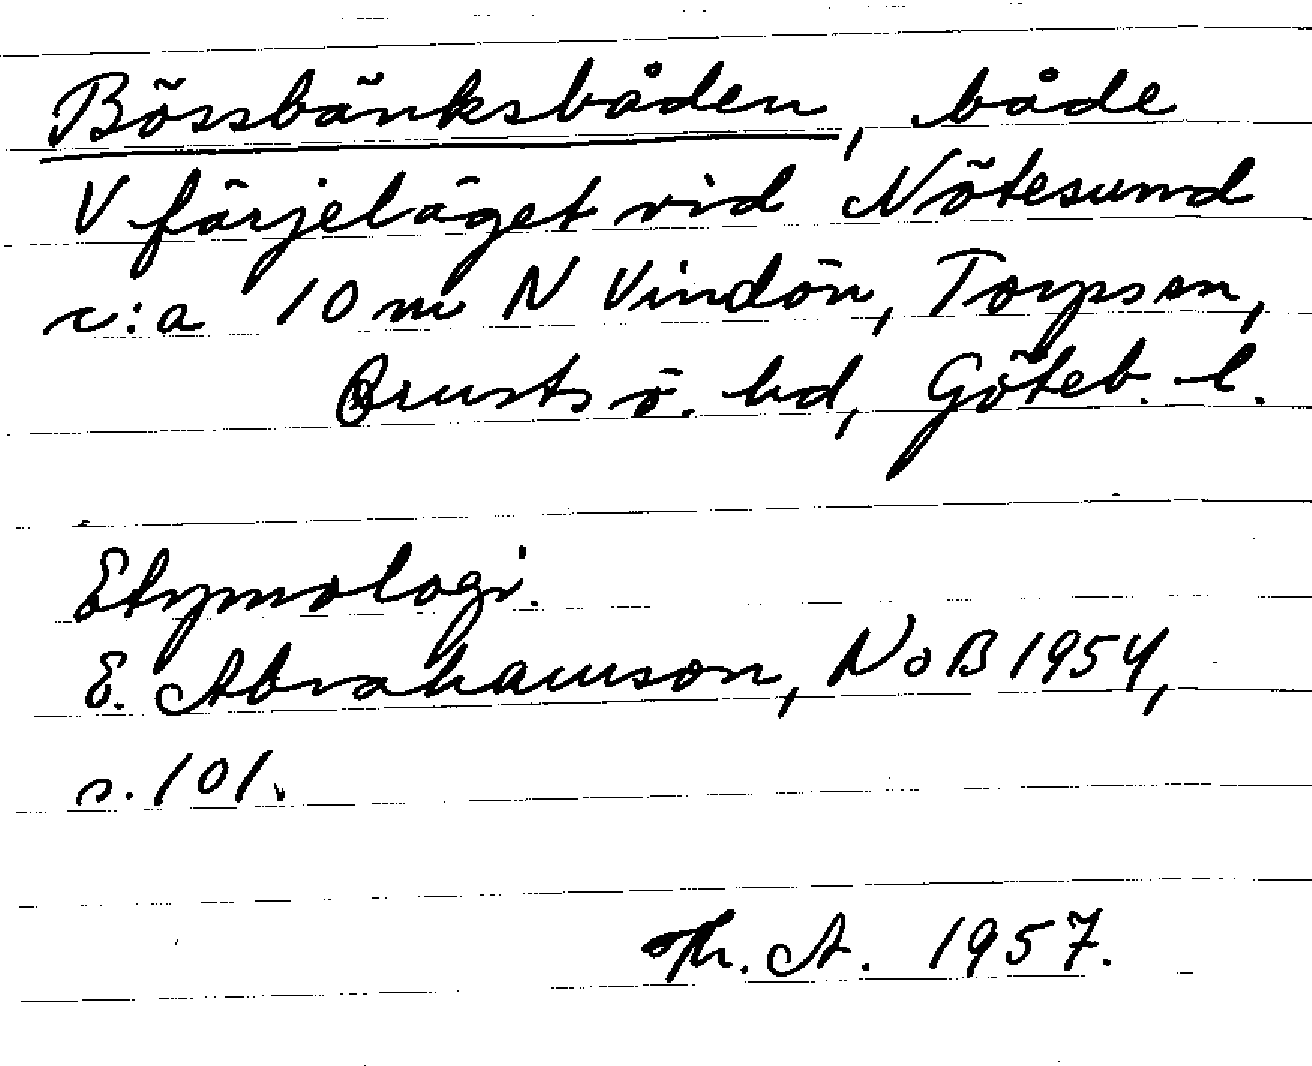 Bössbänksbåden, både
V färjeläget vid Nötesund
c:a 10 m N Vindön, Torps sn,
Orusts ö. hd, Göteb. l.
Etymologi.
E. Abrahamson, NoB 1954,
s. 101.
Th. A. 1957.